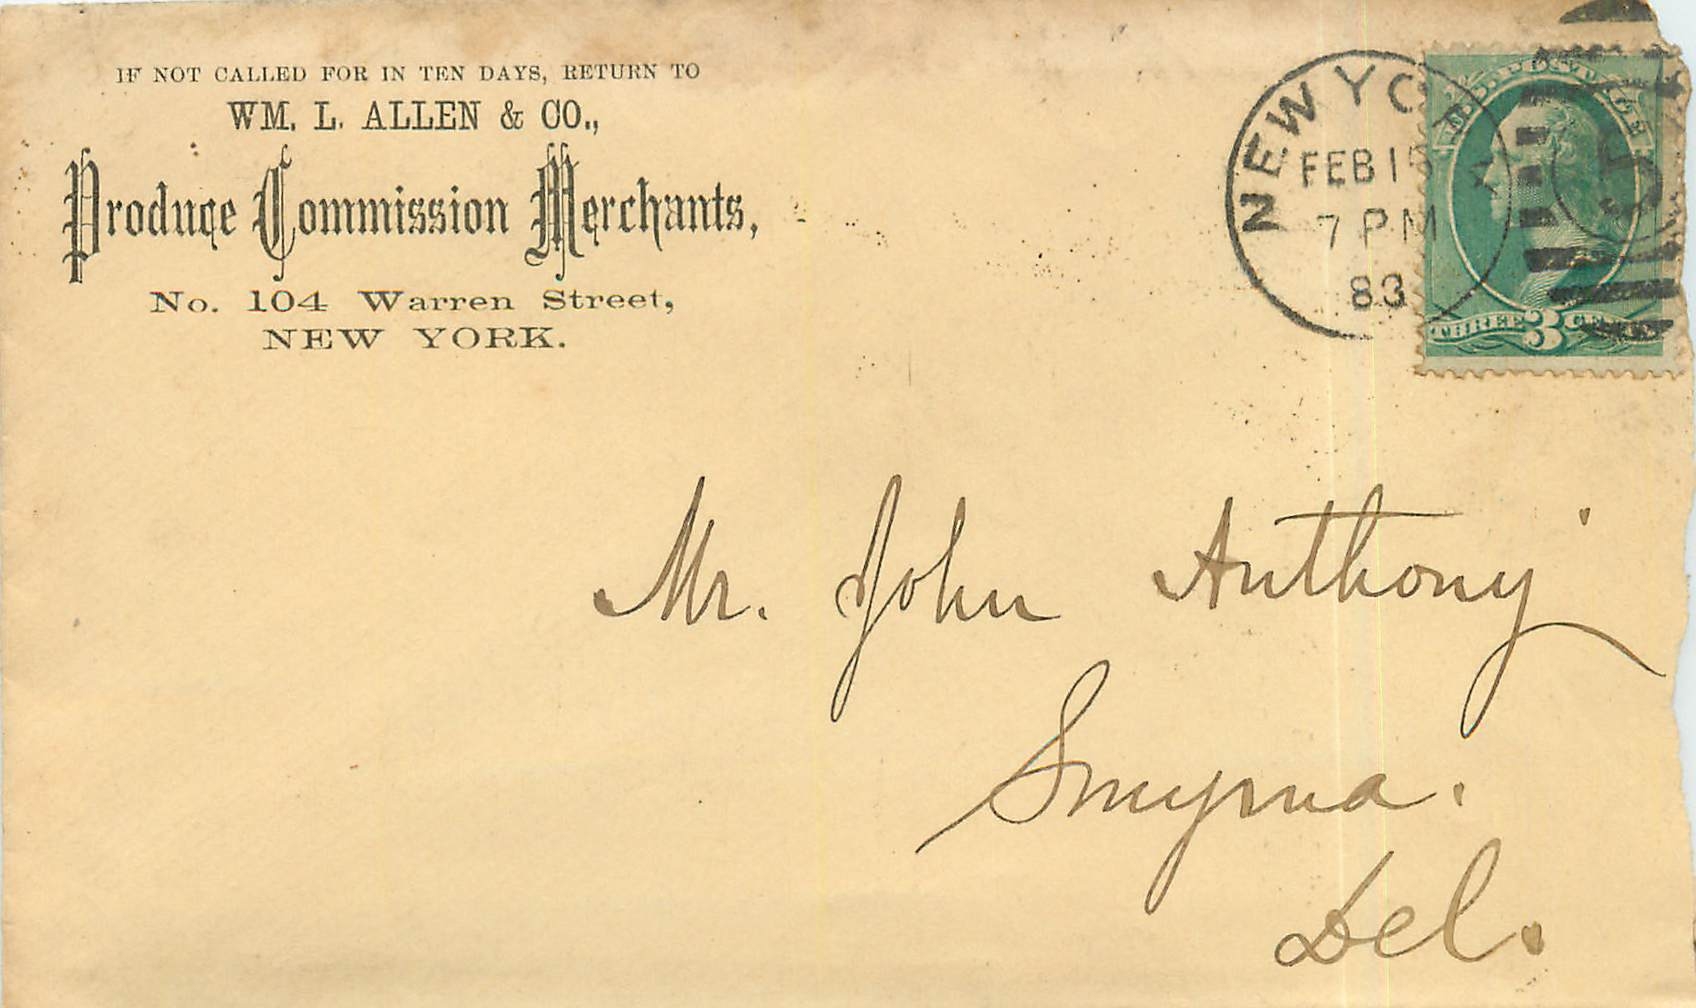 IF NOT CALLED FOR IN TEN DAYS, RETURN TO
WM. L. ALLEN & CO.,
Produce Commission Merchants,
No. 104 Warren Street,
NEW YORK.
NEW YORK
FEB
7 PM
83
U.S. POSTAGE
THREE 3 CENTS
Mr. John Anthony
Smyrna.
Del.